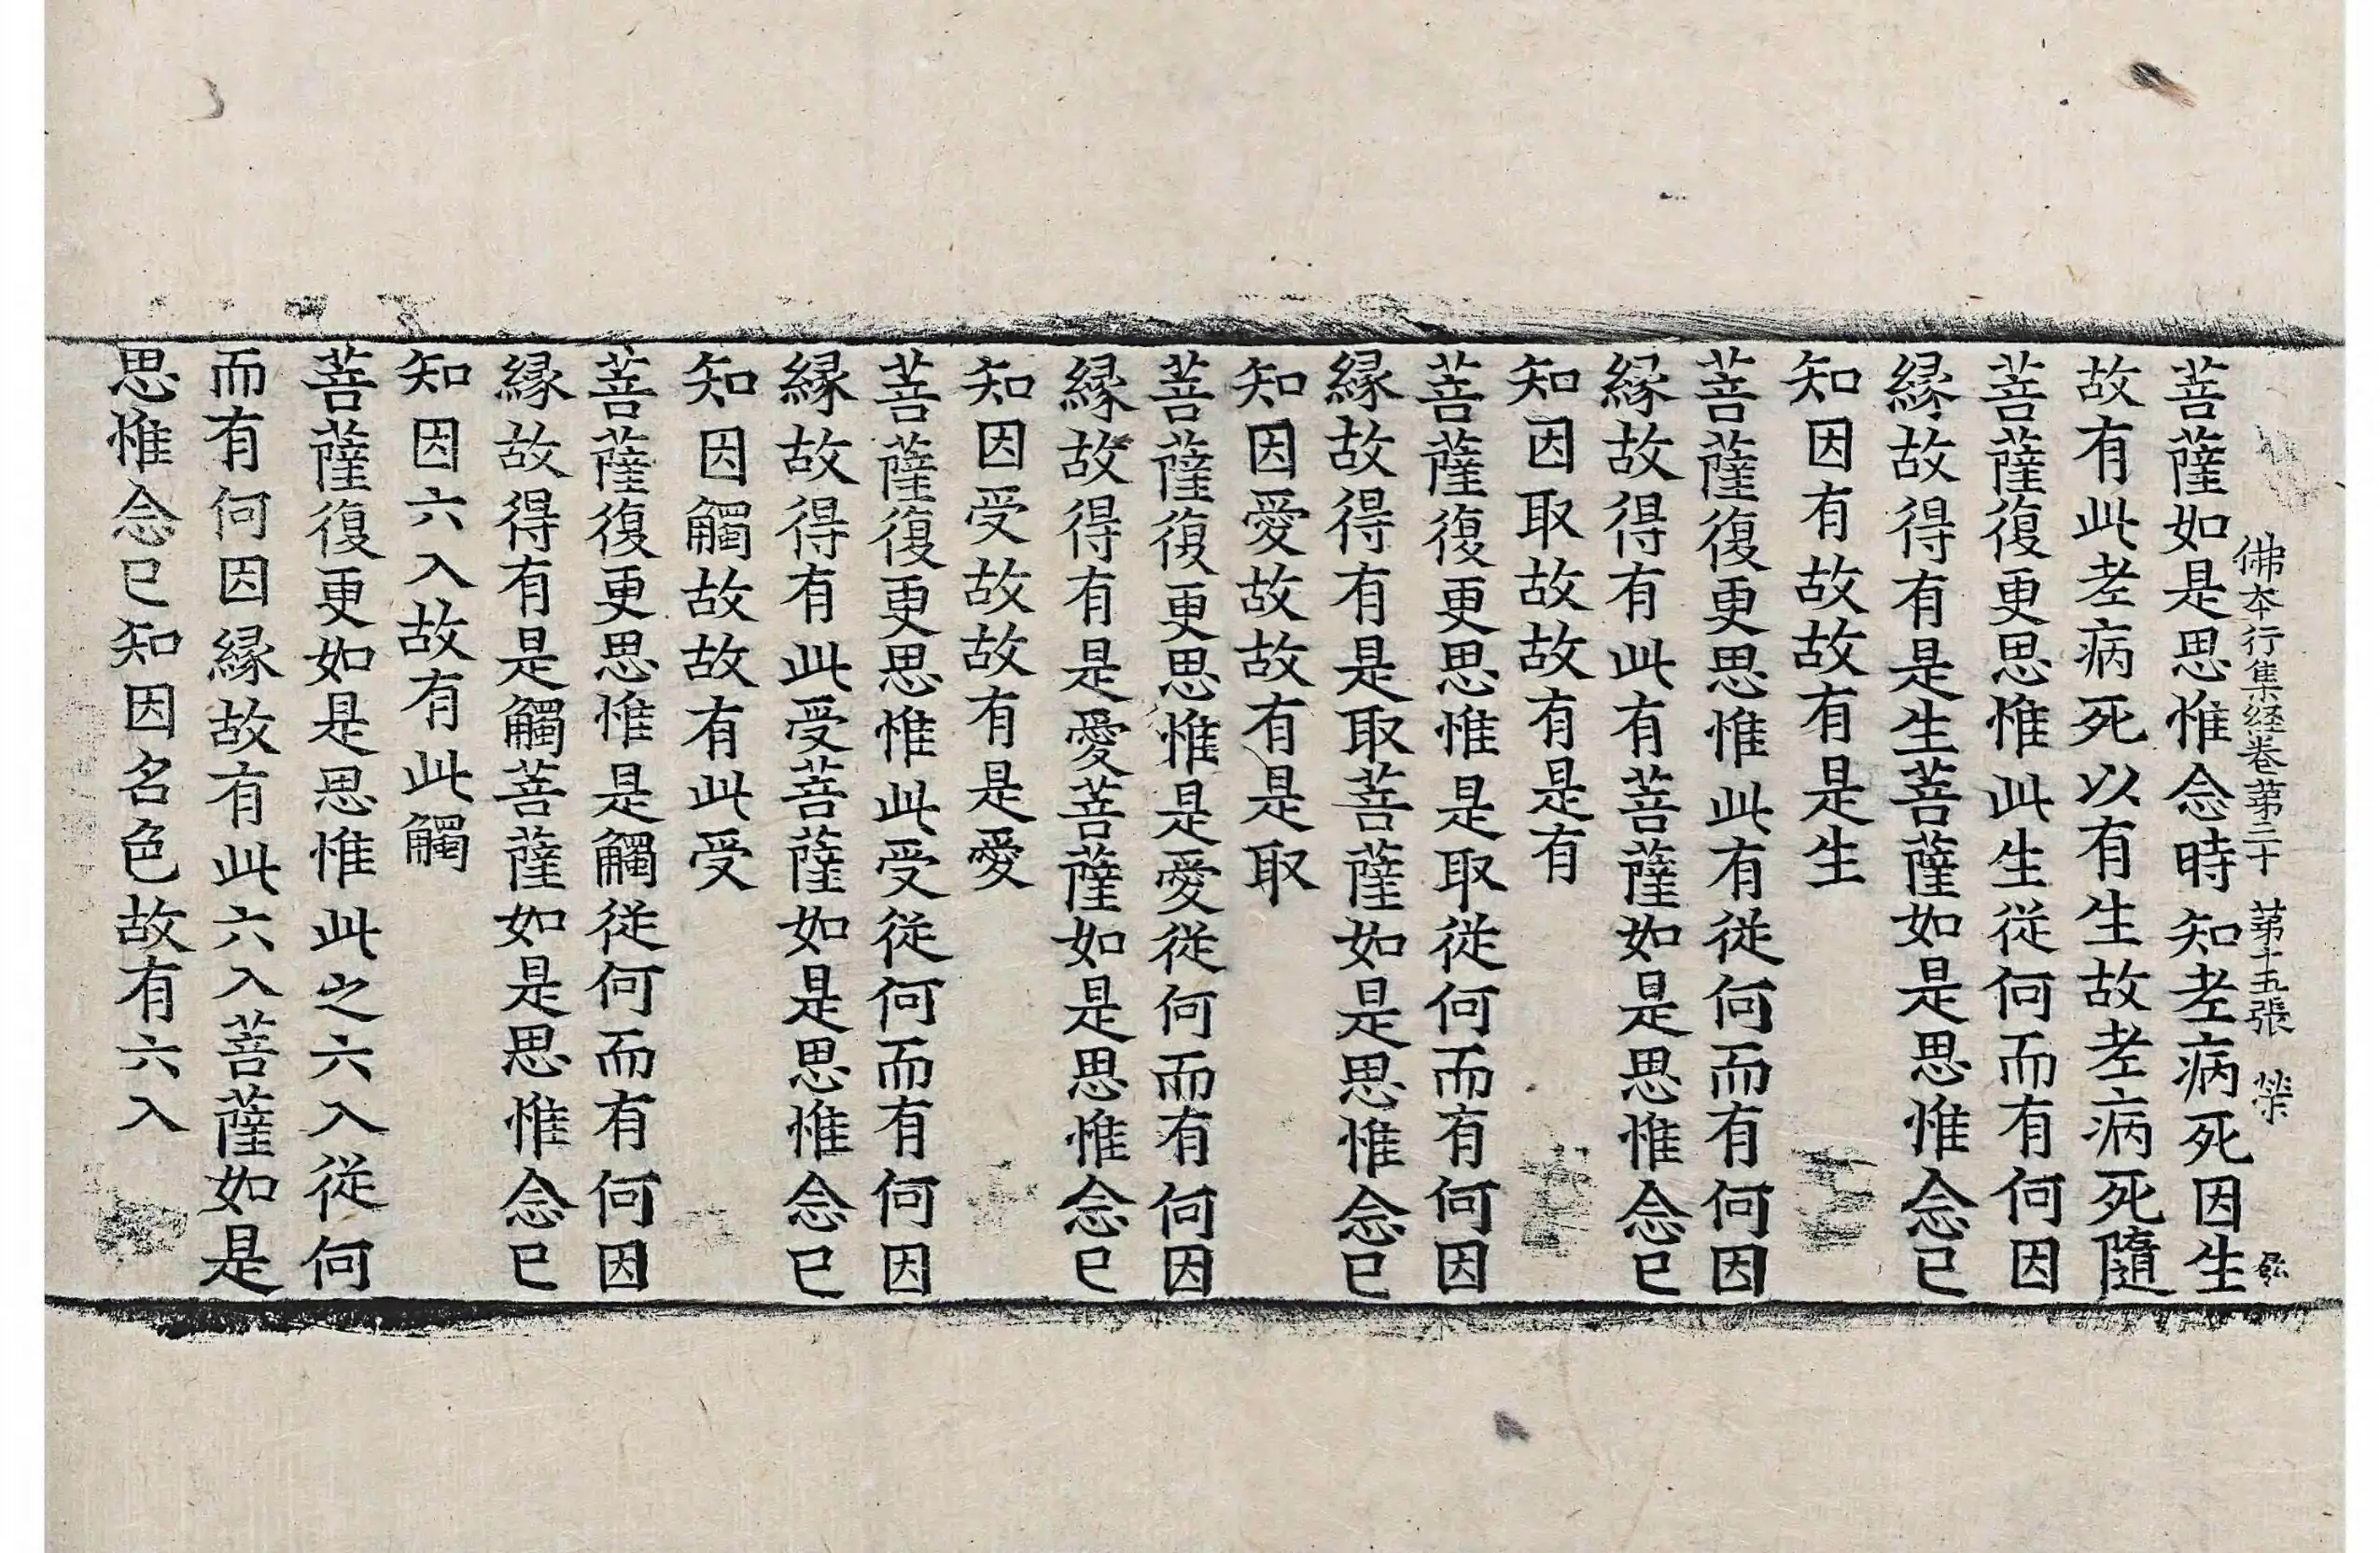 佛夲行集経卷第三十 第十五張 榮
菩薩如是思惟念時知老病死因生
故有此老病死以有生故老病死隨
菩薩復更思惟此生從何而有何因
縁故得有是生菩薩如是思惟念已
知因有故故有是生
菩薩復更思惟此有從何而有何因
縁故得有此有菩薩如是思惟念已
知因取故故有是有
菩薩復更思惟是取從何而有何因
縁故得有是取菩薩如是思惟念已
知因愛故故有是取
菩薩復更思惟是愛從何而有何因
縁故得有是愛菩薩如是思惟念已
知因受故故有是愛
菩薩復更思惟此受從何而有何因
縁故得有此受菩薩如是思惟念已
知因觸故故有此受
菩薩復更思惟是觸從何而有何因
縁故得有是觸菩薩如是思惟念已
知因六入故有此觸
菩薩復更如是思惟此之六入從何
而有何因縁故有此六入菩薩如是
思惟念已知因名色故有六入